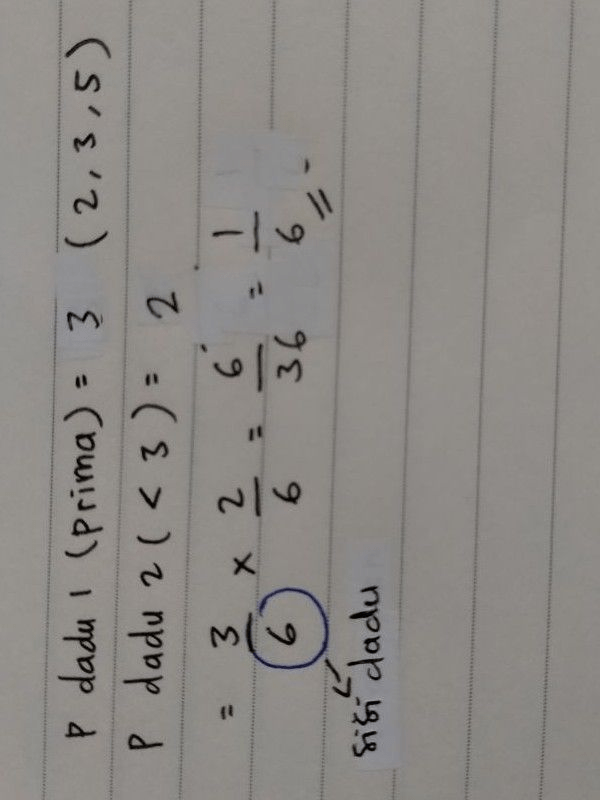 P dadu 1 (prima) = 3 (2, 3, 5)
P dadu 2 (< 3) = 2
= 3/6 × 2/6 = 6/36 = 1/6
sisi dadu